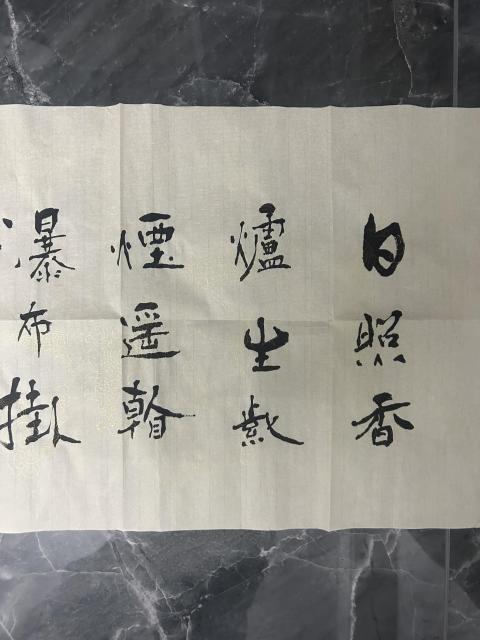 日照香
爐生紫
煙遙看
瀑布掛